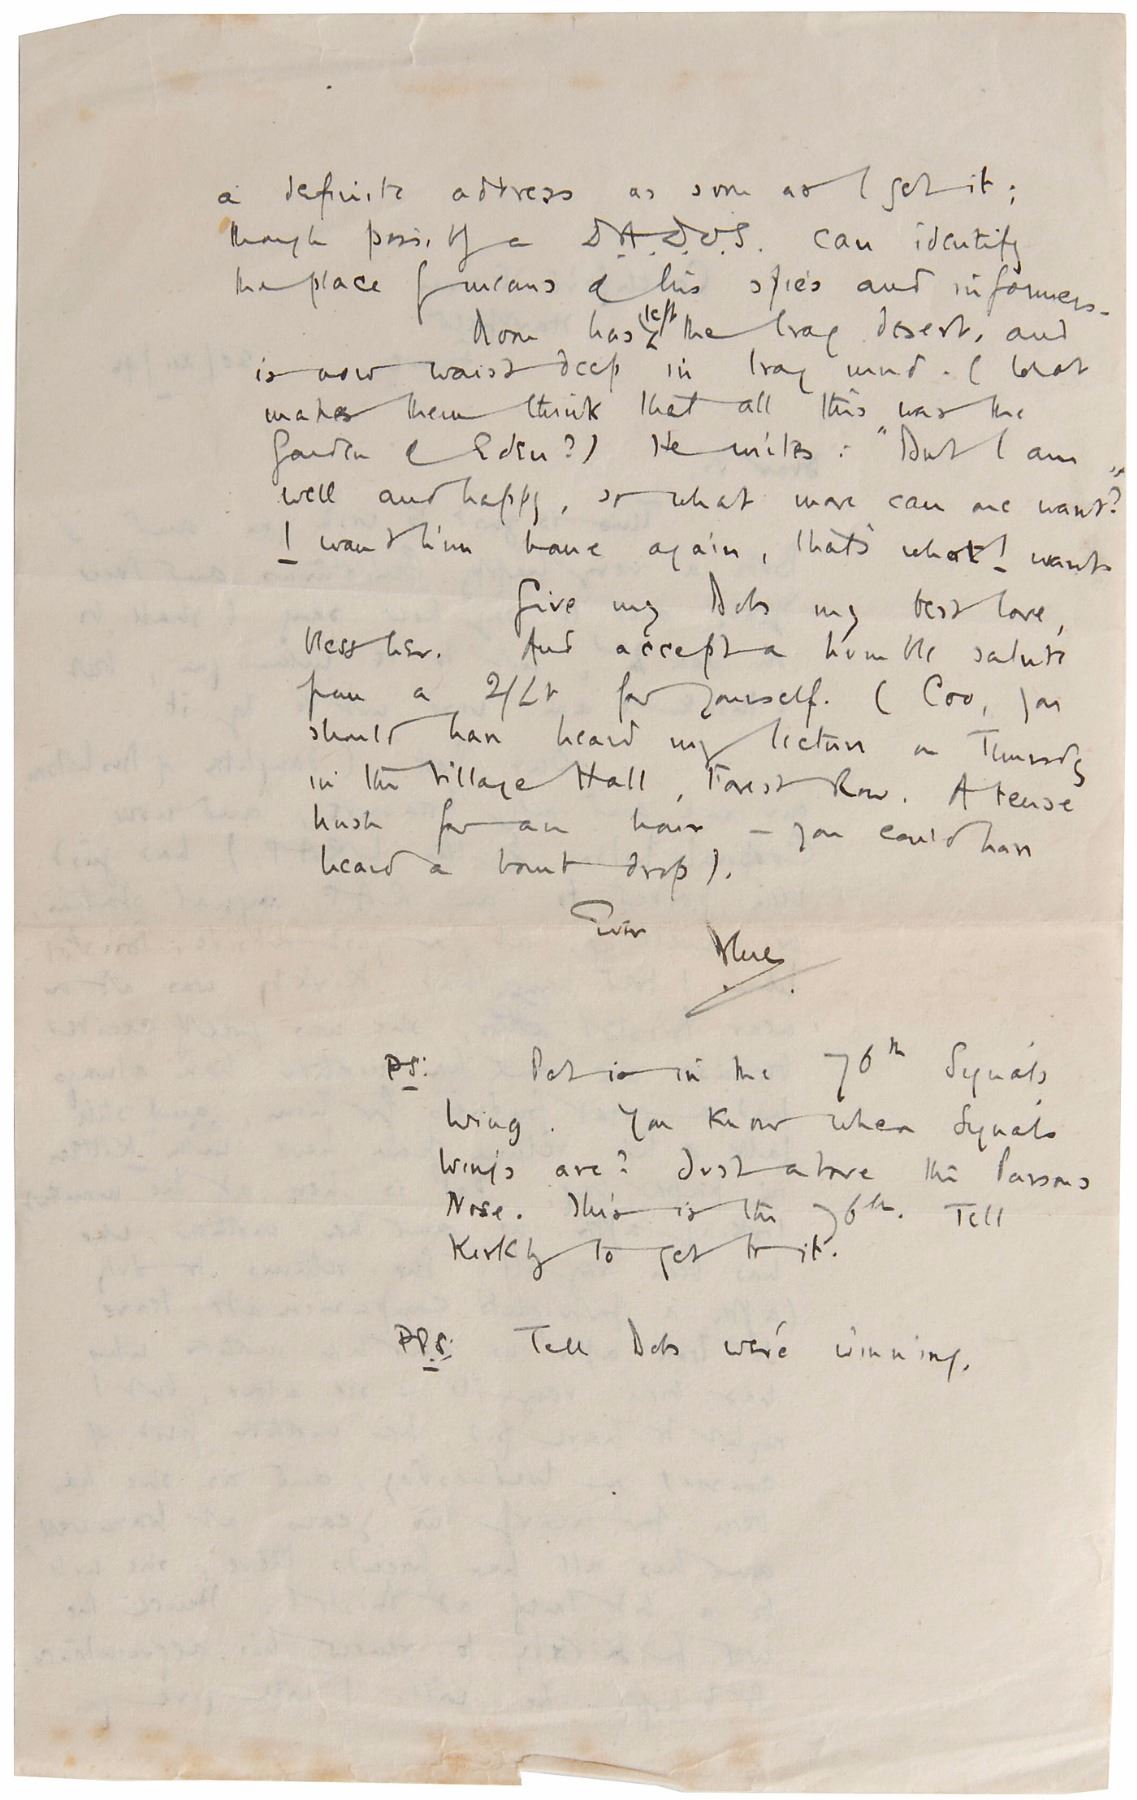 a definite address as soon as I get it;
though possibly a D.A.D.O.S. can identify
the place by means of his spies and informers.
Moon has left the Iraq desert, and
is now waist deep in Iraq mud. (What
makes them think that all this was the
Garden of Eden?) He writes: "But I am
well and happy, so what more can one want?"
I want him home again, that's what I wants
Give my Dots my best love,
bless her. And accept a humble salute
from a 2/Lt for yourself. (Coo, you
should have heard my lecture on Thursdy
in the Village Hall, Forest Row. A tense
hush for an hour - you could have
heard a bomb drop).
Ever Blue
PS: Pet is in the 76th Squab's
Wing. You know where Squab's
Wings are? Just above the Parsons
Nose. This is the 76th. Tell
to get to it.
PPS: Tell Dots we're winning.